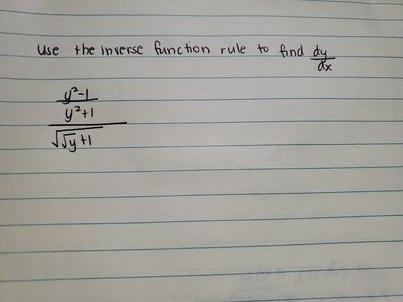 Use the inverse function rule to find dy/dx
y²-1
y²+1
√√y+1